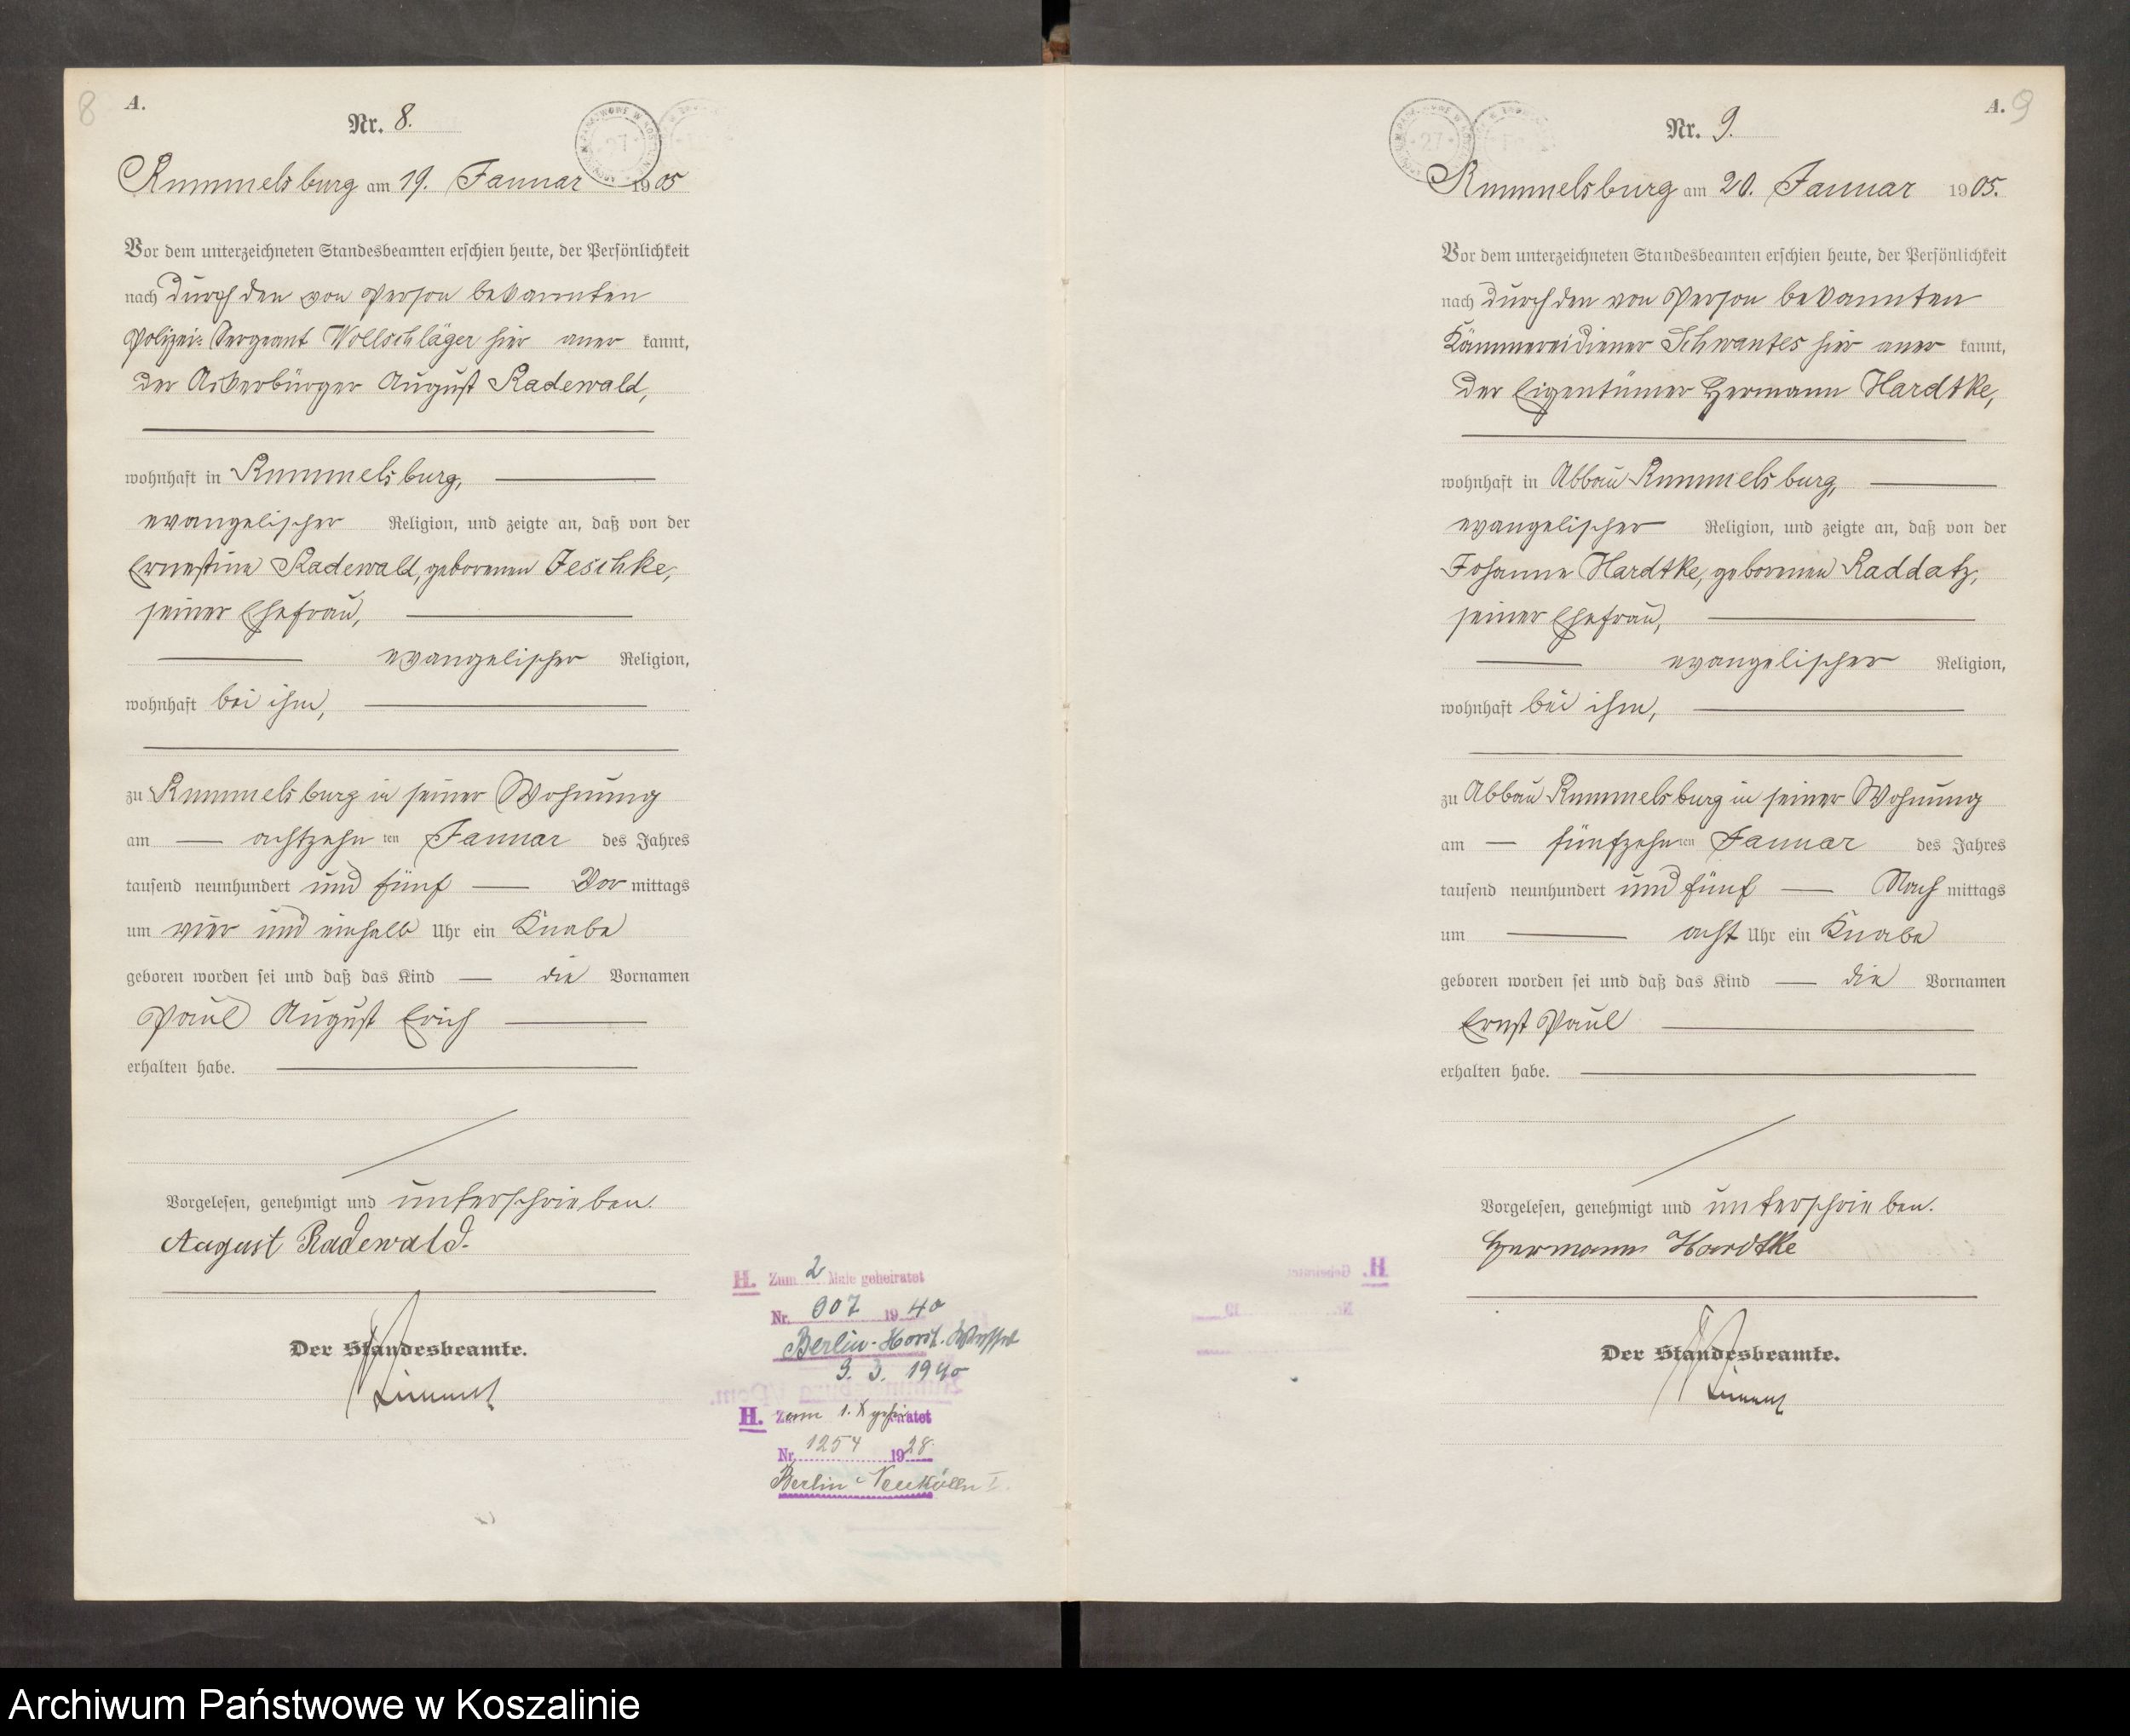 8
A.
Nr. 8.
Rummelsburg am 19. Januar 1905
Vor dem unterzeichneten Standesbeamten erschien heute, der Persönlichkeit
nach durch den von Person bekannten
Polizei-Sergeant Wollschläger hier anerkannt,
der Ackerbürger August Radewald,
wohnhaft in Rummelsburg,
evangelischer Religion, und zeigte an, daß von der
Ernestine Radewald, geborenen Jeschke,
seiner Ehefrau,
evangelischer Religion,
wohnhaft bei ihm,
zu Rummelsburg in seiner Wohnung
am achtzehnten Januar des Jahres
tausend neunhundert und fünf Vormittags
um vier und einhalb Uhr ein Knabe
geboren worden sei und daß das Kind die Vornamen
Paul August Erich
erhalten habe.
Vorgelesen, genehmigt und unterschrieben.
August Radewald.
Der Standesbeamte.
H. Zum 2 Male geheiratet
Nr. 907 1940
Berlin-
9. 3. 1940
H. Zum 1. X geheiratet
Nr. 1254 1928
Berlin-Neukölln I.
A. 9
Nr. 9.
Rummelsburg am 20. Januar 1905.
Vor dem unterzeichneten Standesbeamten erschien heute, der Persönlichkeit
nach durch den von Person bekannten
Kämmereidiener Schwantes hier anerkannt,
der Eigentümer Hermann Hardtke,
wohnhaft in Abbau Rummelsburg,
evangelischer Religion, und zeigte an, daß von der
Johanne Hardtke, geborenen Raddatz,
seiner Ehefrau,
evangelischer Religion,
wohnhaft bei ihm,
zu Abbau Rummelsburg in seiner Wohnung
am fünfzehnten Januar des Jahres
tausend neunhundert und fünf Nachmittags
um acht Uhr ein Knabe
geboren worden sei und daß das Kind die Vornamen
Ernst Paul
erhalten habe.
Vorgelesen, genehmigt und unterschrieben.
Hermann Hardtke
Der Standesbeamte.
Archiwum Państwowe w Koszalinie